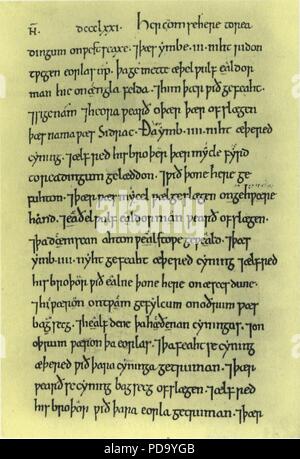 AN̄ · DCCCLXXI · Her com se here to rea
dingum on westseaxe · ⁊ þæs ymbe · iii · niht ridon
twegen eorlas up · þa gemette æþelwulf ealdor
man hie on engla felda · ⁊ him þær wið gefeaht ·
⁊ sige nam · ⁊ heora wearð oþer þær ofslægen
þæs nama wæs Sidrac · Ða ymb · iiii · niht æþered
cyning · ⁊ ælfred his broþer þær mycle fyrd
to readingum gelæddon · ⁊ wið þone here ge
fuhton · ⁊ þær wæs mycel wæl geslægen on gehwæþere
hand · ⁊ eaðelwulf ealdorman wearð ofslægen ·
⁊ þa deniscan ahton wælstowe geweald · ⁊ þæs
ymb · iiii · niht gefeaht æþered cyning ⁊ ælfred
his broþur wið ealne þone here on æscesdune ·
⁊ hi wæron on twam gefylcum on oðrum wæs
bagsecg · ⁊ healfdene þa hæðenan cyningas · ⁊ on
oþrum wæron þa eorlas · ⁊ þa feaht se cyning
æþered wið þara cyninga getruman · ⁊ þær
wearð se cyning bagsecg ofslægen · ⁊ ælfred
his broþor wið þara eorla getruman · ⁊ þær
alamy
PD9YGB